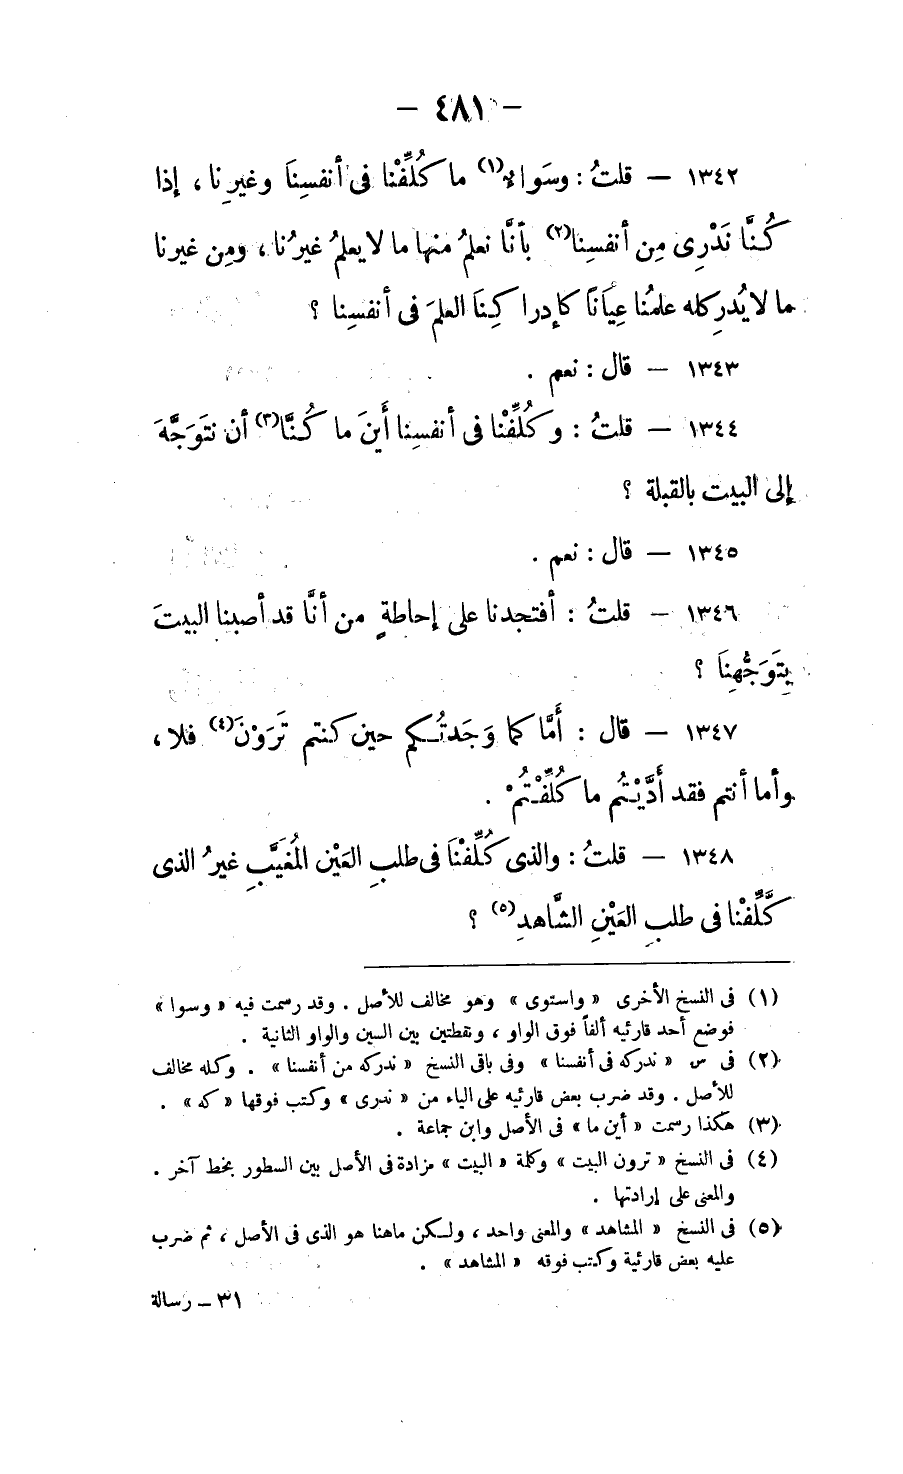 — ٤٨١ —
١٣٤٢ — قلتُ : وسَواءٌ(١) ما كُلِّفْنا فى أنفسِنَا وغيرِنا ، إذا
كُنَّا نَدْرِى مِن أنفسِنا(٢) بأنَّا نعلمُ منها ما لا يعلمُ غيرُنا ، ومِن غيرنا
ما لا يُدرِكله علمُنا عِيَانَاً كإدراكِنَا العلمَ فى أنفسِنا ؟
١٣٤٣ — قال : نعم .
١٣٤٤ — قلتُ : وكُلِّفْنا فى أنفسِنا أَينَ ما كُنَّا(٣) أن نتَوَجَّهَ
إلى البيت بالقبلة ؟
١٣٤٥ — قال : نعم .
١٣٤٦ — قلتُ : أفتجدنا على إحاطةٍ من أنَّا قد أصبنا البيتَ
بِتَوَجُّهِنَا ؟
١٣٤٧ — قال : أَمَّا كما وَجَدتُكم حين كنتم تَرَوْنَ(٤) فلا ،
وأما أنتم فقد أَدَّيْتُم ما كُلِّفْتُمْ .
١٣٤٨ — قلتُ : والذى كُلِّفْنَا فى طلبِ العَيْن المُغَيَّبِ غيرُ الذى
كَلِّفْنا فى طلبِ العَيْنِ الشَّاهدِ(٥) ؟
(١) فى النسخ الأخرى « واستوى » وهو مخالف للأصل . وقد رسمت فيه « وسوا »
فوضع أحد قارئيه ألفاً فوق الواو ، ونقطتين بين السين والواو الثانية .
(٢) فى س « ندركه فى أنفسنا » وفى باقى النسخ « ندركه من أنفسنا » . وكله مخالف
للأصل . وقد ضرب بعض قارئيه على الياء من « ندرى » وكتب فوقها « كه » .
(٣) هكذا رسمت « أين ما » فى الأصل وابن جماعة .
(٤) فى النسخ « ترون البيت » وكلمة « البيت » مزادة فى الأصل بين السطور بخط آخر .
والمعنى على إرادتها .
(٥) فى النسخ « المشاهد » والمعنى واحد ، ولكن ماهنا هو الذى فى الأصل ، ثم ضرب
عليه بعض قارئية وكتب فوقه « المشاهد » .
٣١ — رسالة